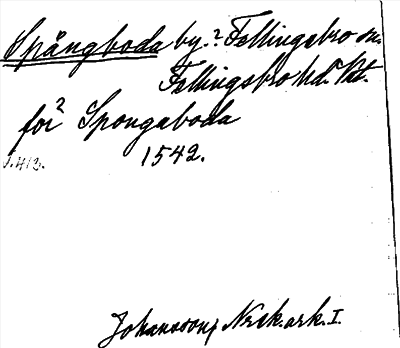 Spångboda by.? Fellingsbro sn.
Fellingsbro hd. Vstm.
för? Spongaboda
1542.
s.413.
Johansson, Nask.ark. I.